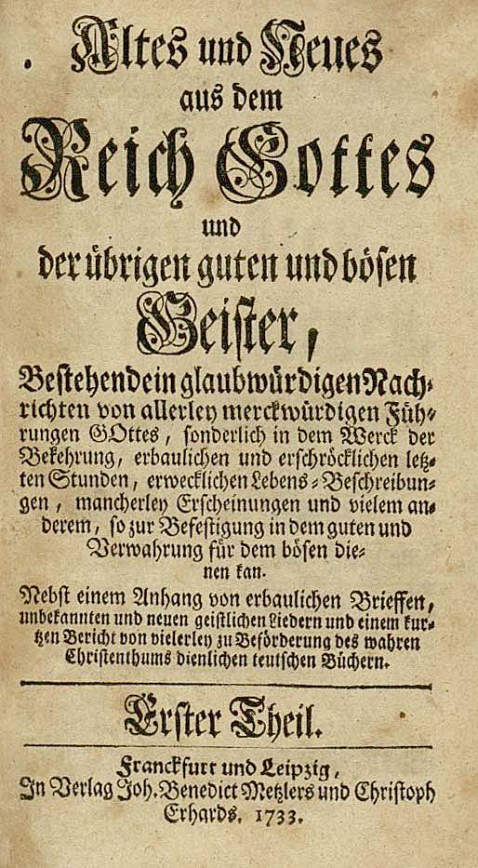 Altes und Neues
aus dem
Reich Gottes
und
der übrigen guten und bösen
Geister,
Bestehend ein glaubwürdigen Nach-
richten von allerley merckwürdigen Füh-
rungen GOttes, sonderlich in dem Werck der
Bekehrung, erbaulichen und erschröcklichen letz-
ten Stunden, erwecklichen Lebens-Beschreibun-
gen, mancherley Erscheinungen und vielem an-
derem, so zur Befestigung in dem guten und
Verwahrung für dem bösen die-
nen kan.
Nebst einem Anhang von erbaulichen Brieffen,
unbekannten und neuen geistlichen Liedern und einem kur-
tzen Bericht von vielerley zu Beförderung des wahren
Christenthums dienlichen teutschen Büchern.
Erster Theil.
Franckfurt und Leipzig,
In Verlag Joh. Benedict Metzlers und Christoph
Erhards. 1733.